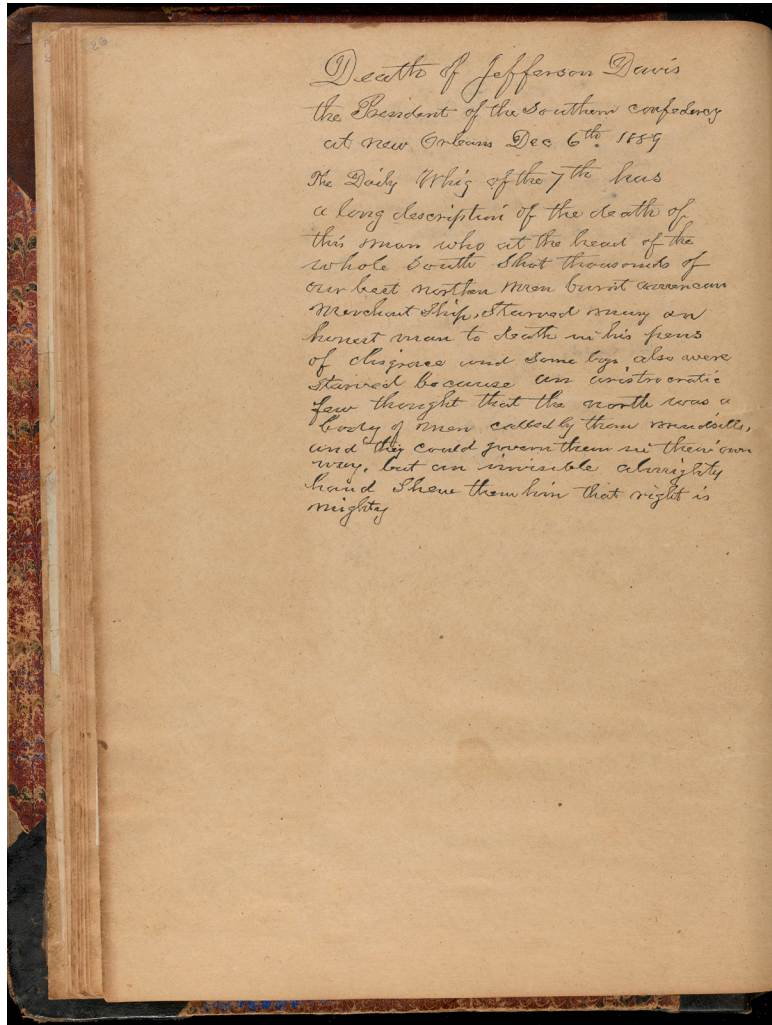 26
Death of Jefferson Davis
the President of the Southern confedercy
at new Orleans Dec 6th 1889
The Daily Whig of the 7th has
a long description of the death of
this man who at the head of the
whole South Shot thousands of
our best northen men burnt
Merchant Ship, Starved many an
honest man to death in his pens
of disgrace and Some boys also were
Starved because an aristrocratic
few thought that the north was a
body of men called by them mudsills,
and they could govern them in their own
way, but an invisible almighty
hand Shew them him that right is
mighty